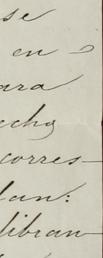 se
en
ara
echo
corres-
dan:
libran-